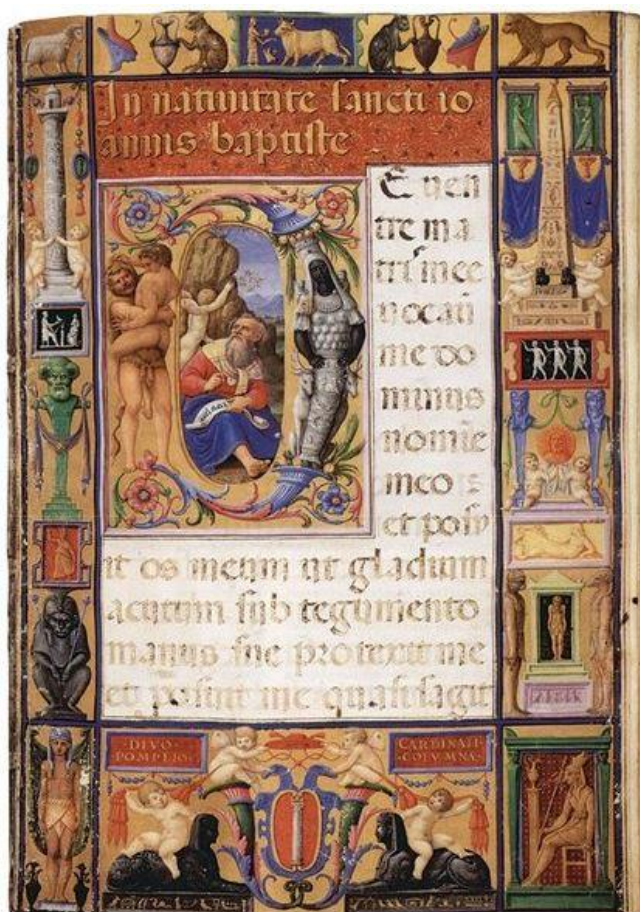 In natiuitate sancti io
annis baptiste
E uen
tre ma
tris mee
uocaui
me do
minus
nomie
meo :
et posu
it os meum ut gladium
acutum sub tegumento
manus sue protexit me
et posuit me quasi sagit
·DIVO·
POMPEIO·
CARDINALI
·COLVMNA·